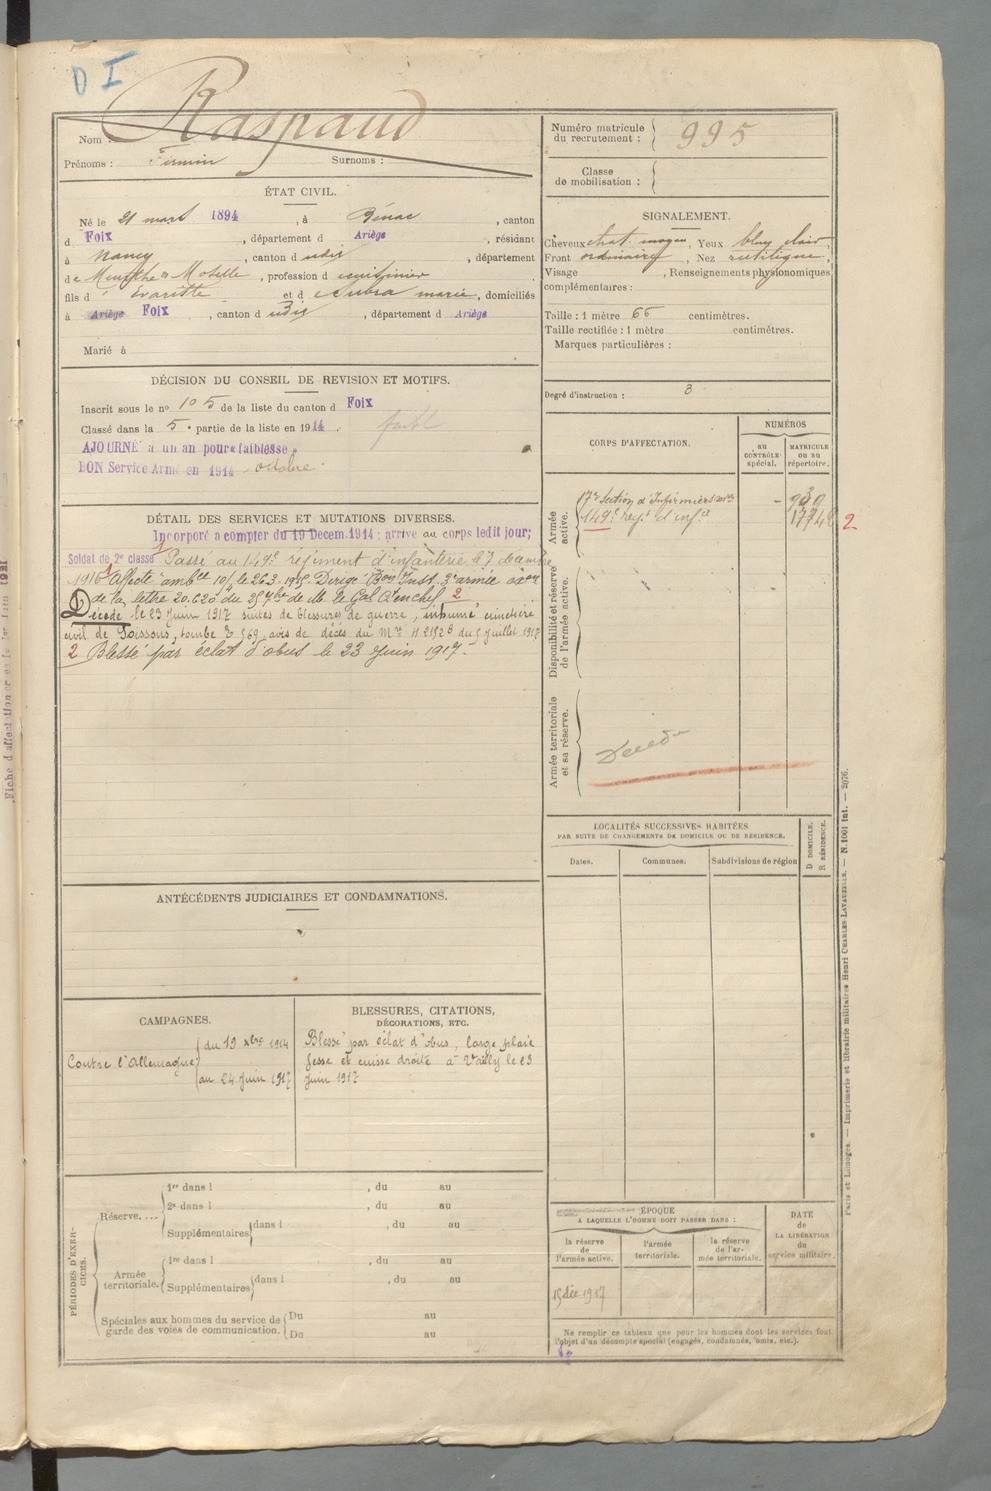 D I
Nom : Raspaud
Prénoms : Firmin Surnoms :
ÉTAT CIVIL.
Né le 21 mars 1894, à Bénac, canton
d Foix, département d Ariège, résidant
à Nancy, canton d udis, département
de Meurthe et Moselle, profession d cuisinier
fils d' Evariste et d Aubra marie, domiciliés
à Ariège Foix, canton d udis, département d Ariège
Marié à
DÉCISION DU CONSEIL DE REVISION ET MOTIFS.
Inscrit sous le no 105 de la liste du canton d Foix
Classé dans la 5e partie de la liste en 1914. faibl
AJOURNÉ à un an pour « faiblesse »
BON Service Armé en 1914 - octobre.
DÉTAIL DES SERVICES ET MUTATIONS DIVERSES.
Incorporé a compter du 19 Decem. 1914; arrivé au corps ledit jour;
Soldat de 2e classe 1 Passé au 149e régiment d'infanterie le 7 décembre
1916 1 Affecté amb ce 10/ le 26 3 1915. Dirigé 3e armée
de la lettre 20.620 du 25 7bre de M. le Gal 2
Décédé le 23 Juin 1917 suites de blessures de guerre, inhumé cimetière
civil de Soissons, tombe E 569, avis de décès du Mre H 2192 B du 5 juillet 1917
2 Blessé par éclat d'obus le 23 Juin 1917.
ANTÉCÉDENTS JUDICIAIRES ET CONDAMNATIONS.
CAMPAGNES.
Contre l'Allemagne
du 19 Xbre 1914
au 24 Juin 1917
BLESSURES, CITATIONS,
DÉCORATIONS, ETC.
Blessé par éclat d'obus, large plaie
fesse et cuisse droite à Vailly le 23
Juin 1917
PÉRIODES D'EXERCICES.
Réserve....
1re dans l , du au
2e dans l , du au
Supplémentaires dans l , du au
Armée
territoriale.
1re dans l , du au
Supplémentaires dans l , du au
Spéciales aux hommes du service de
garde des voies de communication.
Du au
Du au
Numéro matricule
du recrutement : 995
Classe
de mobilisation :
SIGNALEMENT.
Cheveux chat. moyen, Yeux bleu clair,
Front ordinaire, Nez rectiligne,
Visage , Renseignements physionomiques
complémentaires :
Taille : 1 mètre 66 centimètres.
Taille rectifiée : 1 mètre centimètres.
Marques particulières :
Degré d'instruction : 3
CORPS D'AFFECTATION.
NUMÉROS
AU
CONTRÔLE
spécial.
MATRICULE
OU AU
répertoire.
Armée
active.
17e Section d'Infirmiers mres
149e regt d'infie
2
Disponibilité et réserve
de l'armée active.
Armée territoriale
et sa réserve.
Décédé
LOCALITÉS SUCCESSIVES HABITÉES
PAR SUITE DE CHANGEMENTS DE DOMICILE OU DE RÉSIDENCE.
Dates. Communes. Subdivisions de région
D DOMICILE.
R RÉSIDENCE.
ÉPOQUE
A LAQUELLE L'HOMME DOIT PASSER DANS :
la réserve
de
l'armée active.
l'armée
territoriale.
la réserve
de l'ar-
mée territoriale.
DATE
de
LA LIBÉRATION
du
service militaire.
15 déc. 1917
Ne remplir ce tableau que pour les hommes dont les services font
l'objet d'un décompte spécial (engagés, condamnés, omis, etc.).
Paris et Limoges. — Imprimerie et librairie militaires Henri CHARLES-LAVAUZELLE. — N. 1001 int. — 2076.